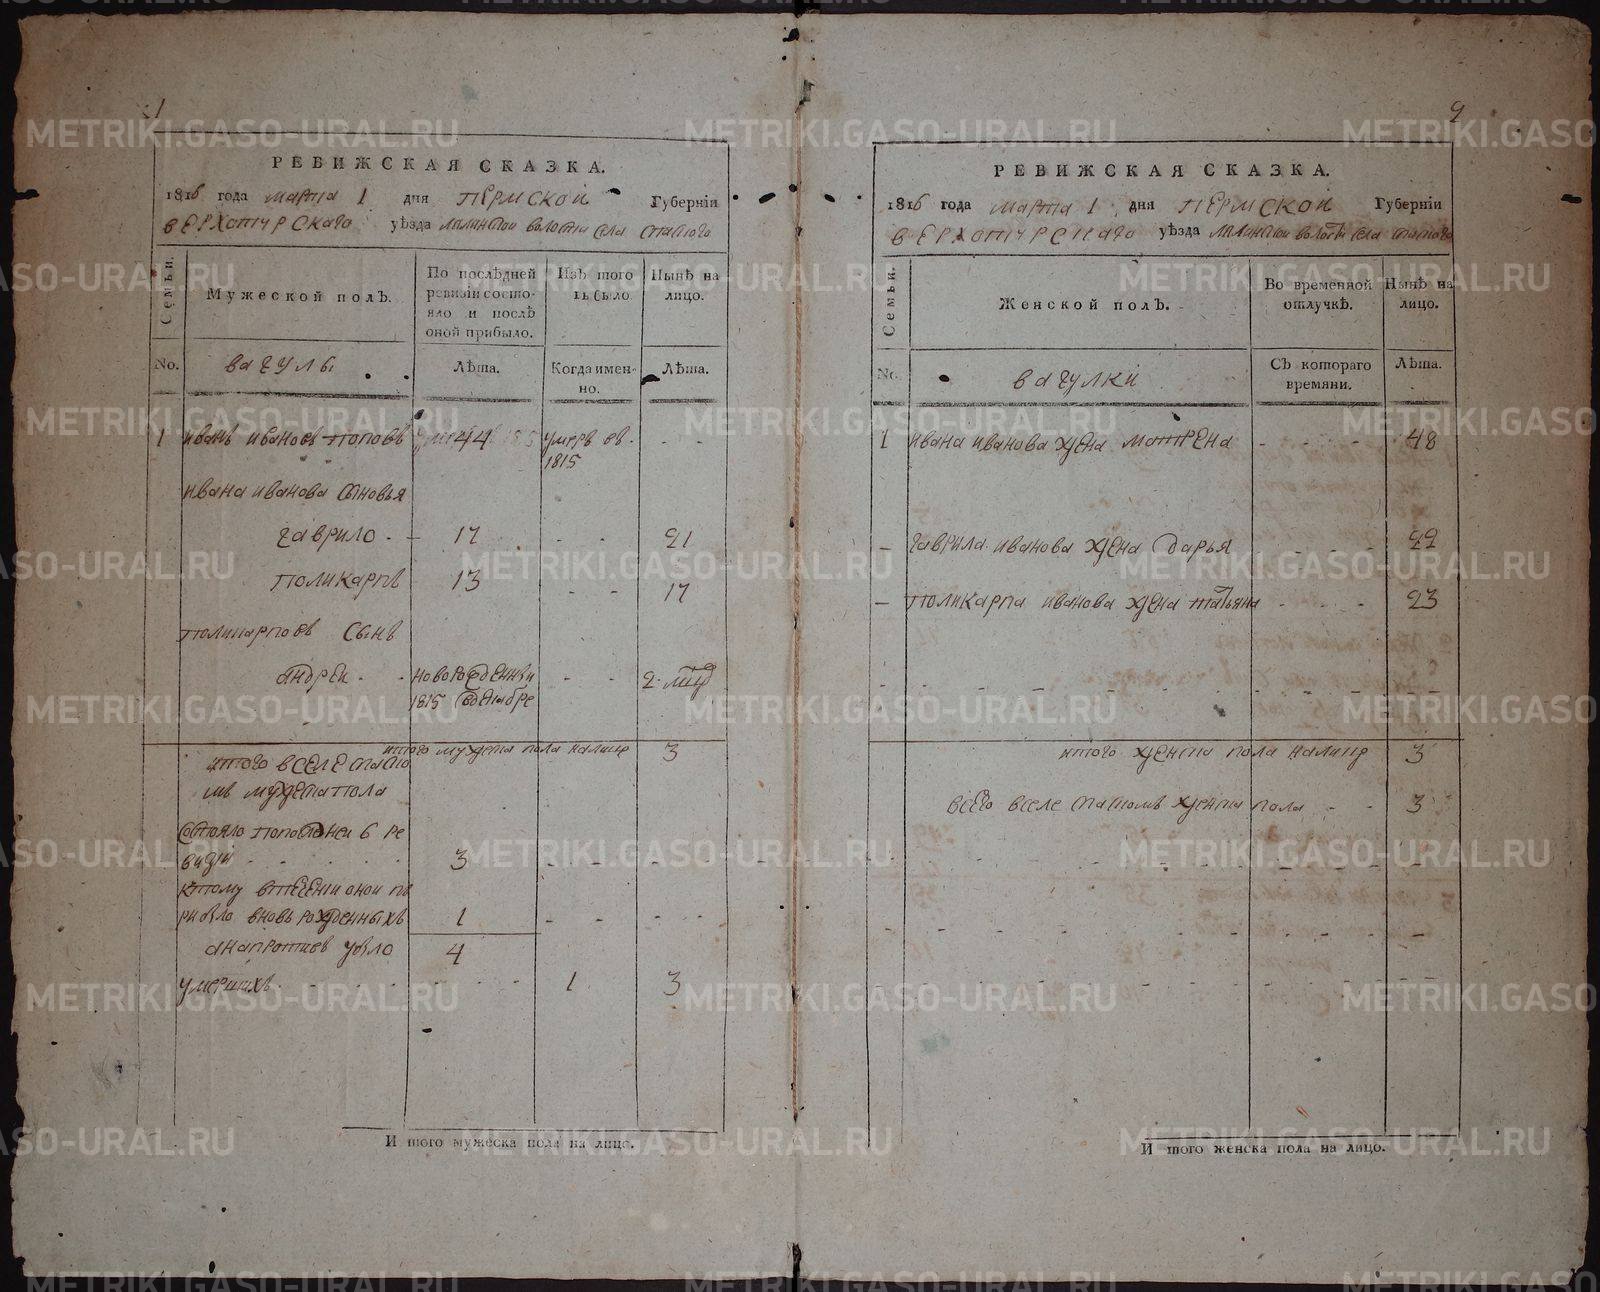 1
РЕВИЖСКАЯ СКАЗКА.
1816 года марта 1 дня Пермской Губернїи
верхотурскаго уѣзда лялинской волости села спаского
Семьи.
Мужеской полЪ.
По послѣдней ревизїи состояло и послѣ оной прибыло.
ИзЪ того выбыло
Нынѣ на лицо.
No.
вагулы
Лѣта.
Когда именно.
Лѣта.
1 иванъ ивановъ поповъ 44 умеръ въ 1815 - -
ивана иванова сыновья
гаврило - - 17 - - 21
поликарпъ 13 - - 17
поликарповъ сынъ
андреи - - новорожденныи 1815 декабре - - 2 
итого мужеска пола налицо 3
итого вселе спаскомъ мужеска пола
состояло попоследнеи 6 ревизїи 3
ктому втечении онои прибыло вновь рожденныхъ 1
анапротивъ убыло 4
умершихъ 1 3
И того мужеска пола на лицо.
2
РЕВИЖСКАЯ СКАЗКА.
1816 года марта 1 дня Пермской Губернїи
верхотурскаго уѣзда лялинской волости села спаского
Семьи.
Женской полЪ.
Во временной отлучкѣ.
Нынѣ на лицо.
No.
вагулки
СЪ котораго времяни.
Лѣта.
1 ивана иванова жена матрена - - - - 48
- гаврила иванова жена дарья - - - - 22
- поликарпа иванова жена татьяна - - - - 23
итого женска пола налицо 3
всего вселе спаскомъ женска пола - - 3
И того женска пола на лицо.
METRIKI.GASO-URAL.RU